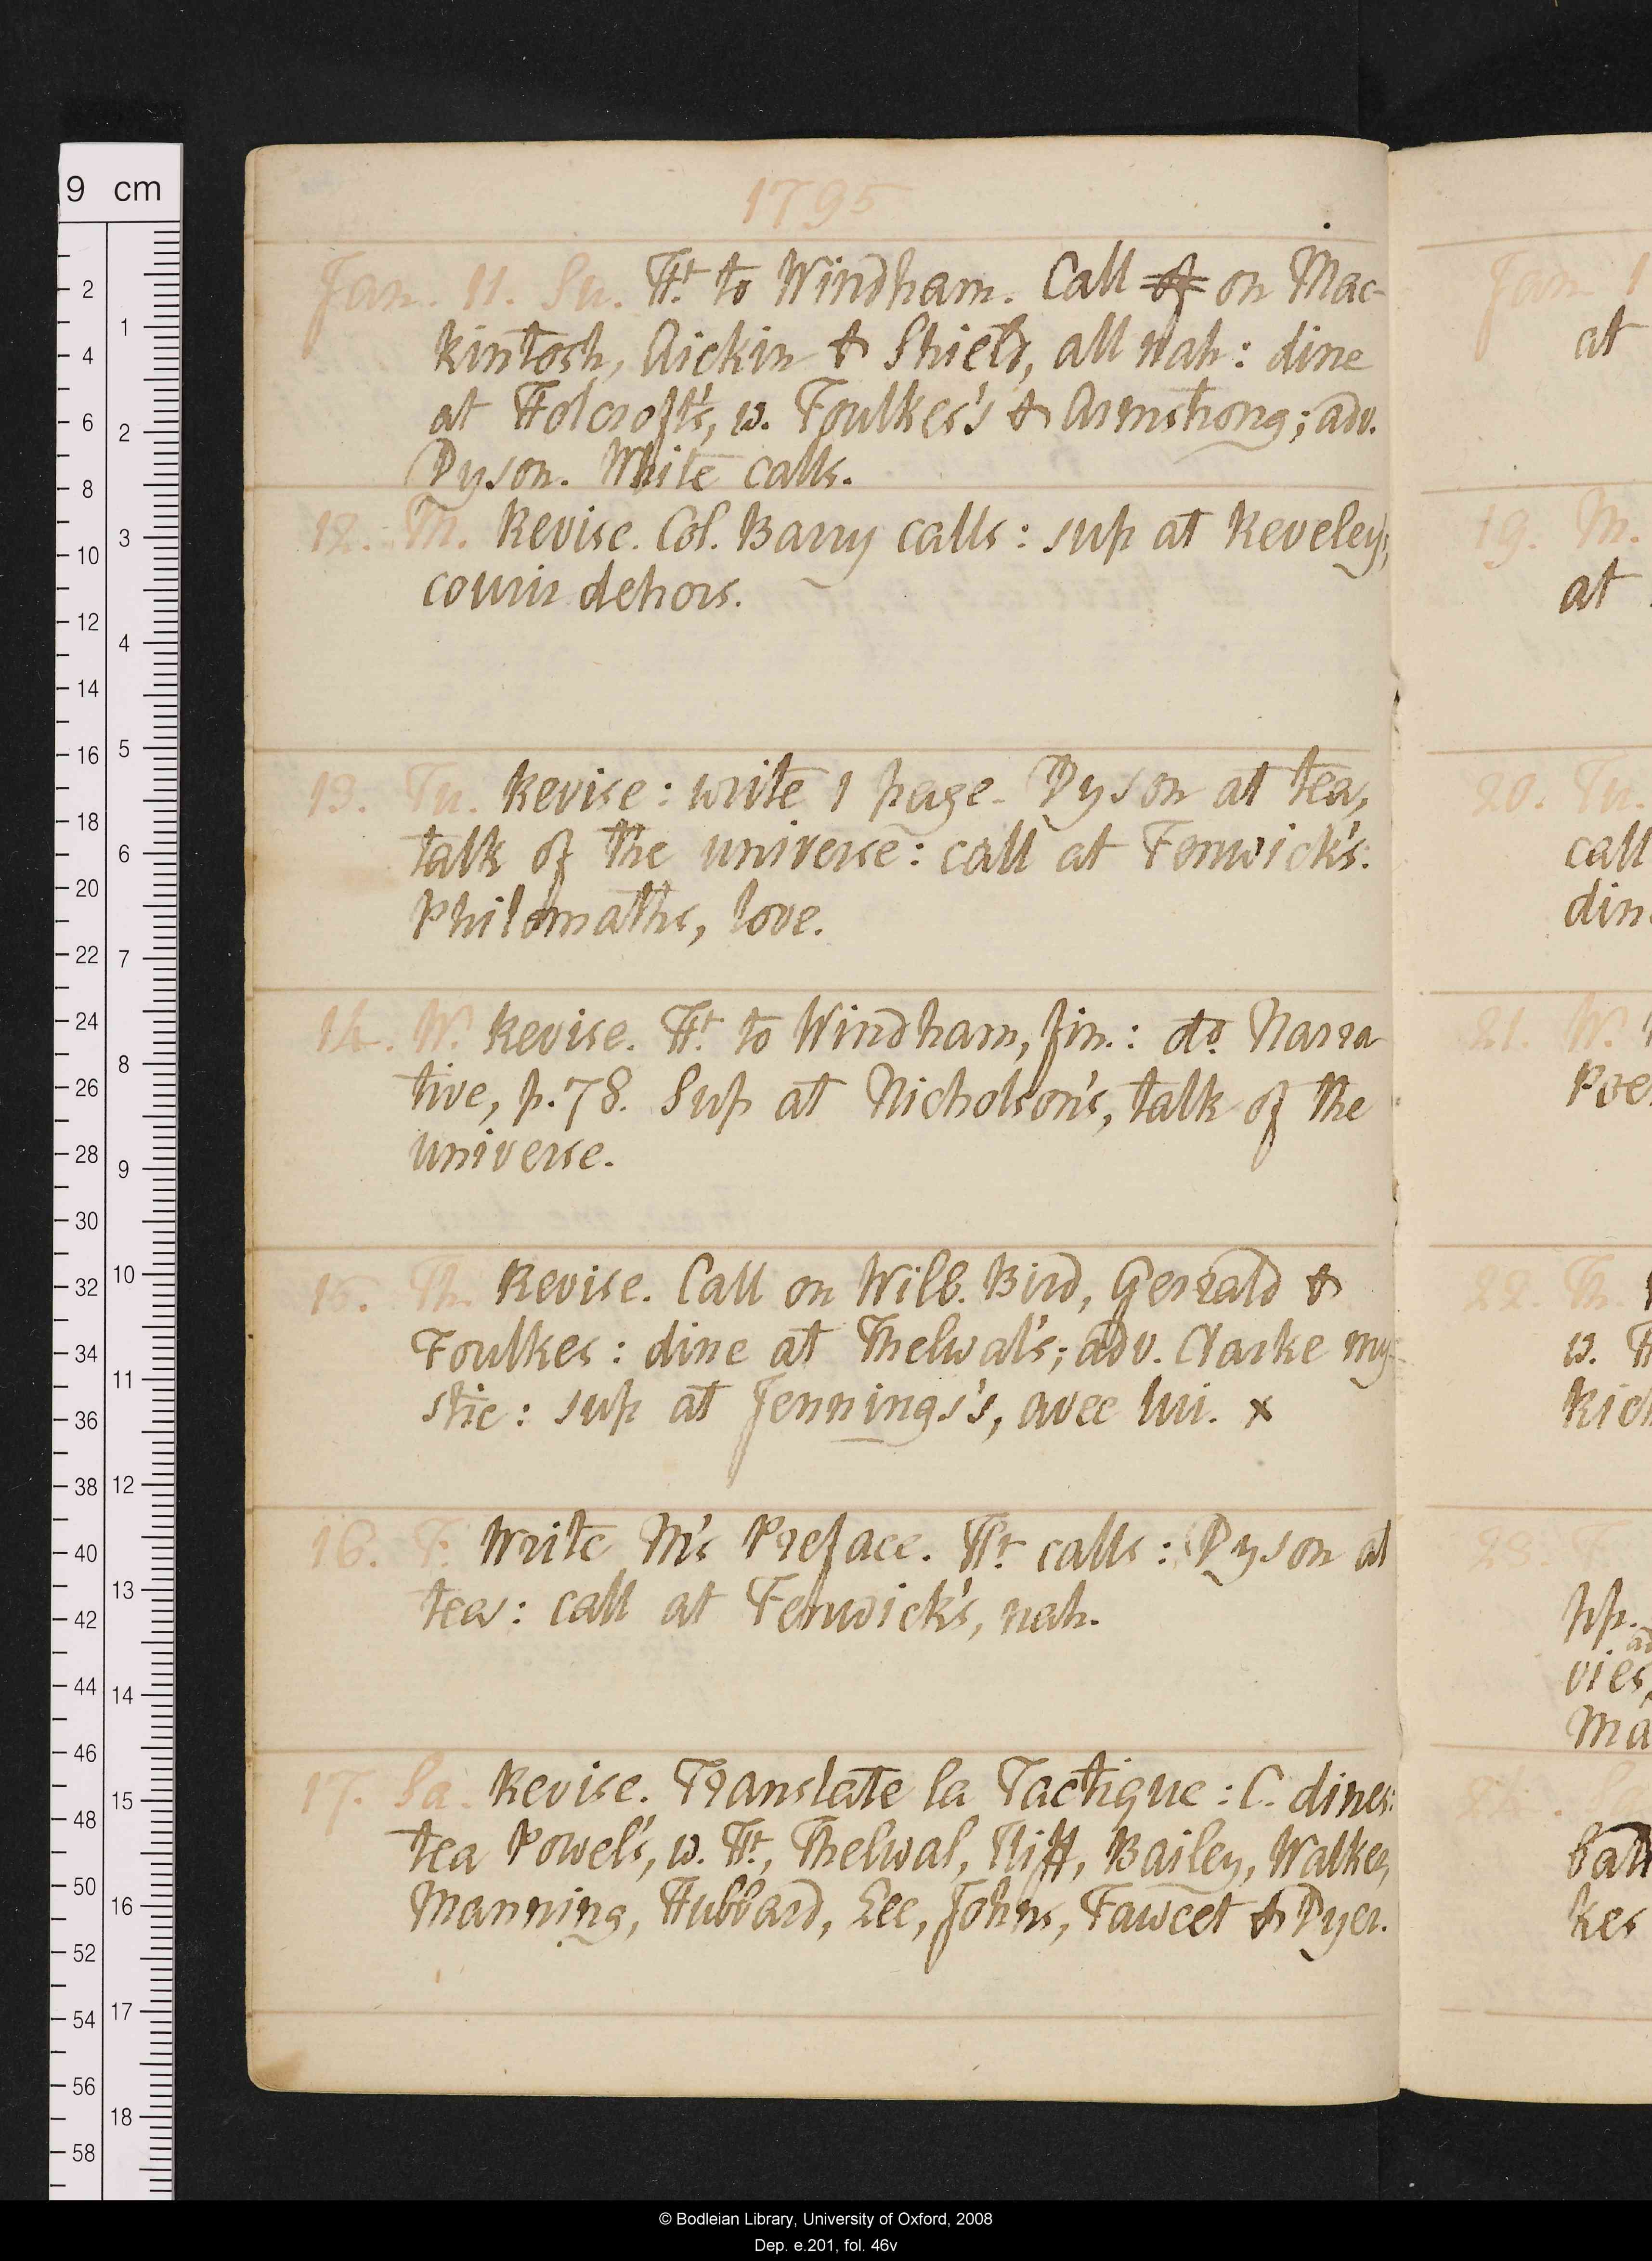 1795
Jan. 11. Su. Ht to Windham. Call at on Mac-
kintosh, Aickin & Shield, all nah: dine
at Holcroft's, w. Foulkes's & Armstrong; adv.
Dyson. White calls.
12. M. Revise. Col. Barry calls: sup at Reveley's,
courir dehors.
13. Tu. Revise: write 1 page. Dyson at tea,
talk of the universe: call at Fenwick's.
Philomaths, love.
14. W. Revise. Ht to Windham, fin.: do Narra
tive, p. 78. Sup at Nicholson's, talk of the
universe.
15. Th. Revise. Call on Wilb. Bird, Gerrald &
Foulkes: dine at Thelwal's; adv. Clarke my-
stic: sup at Jennings's, avec lui. x
16. F. Write M's Preface. Ht calls: Dyson at
tea: call at Fenwick's, nah.
17. Sa. Revise. Translate la Tactique: C. dines:
tea Powel's, w. Ht, Thelwal, Iliff, Bailey, Walker,
Manning, Hubbard, Lee, Johns, Fawcet & Dyer.
Jan. 1
at
19. M.
at
20. Tu.
call
din
21. W.
Poe
22. Th.
w. H
Rich
23. F
pp.
ad
vies,
Ma
24. Sa
ball
kes
9 cm
2
4
6
8
10
12
14
16
18
20
22
24
26
28
30
32
34
36
38
40
42
44
46
48
50
52
54
56
58
1
2
3
4
5
6
7
8
9
10
11
12
13
14
15
16
17
18
© Bodleian Library, University of Oxford, 2008
Dep. e.201, fol. 46v